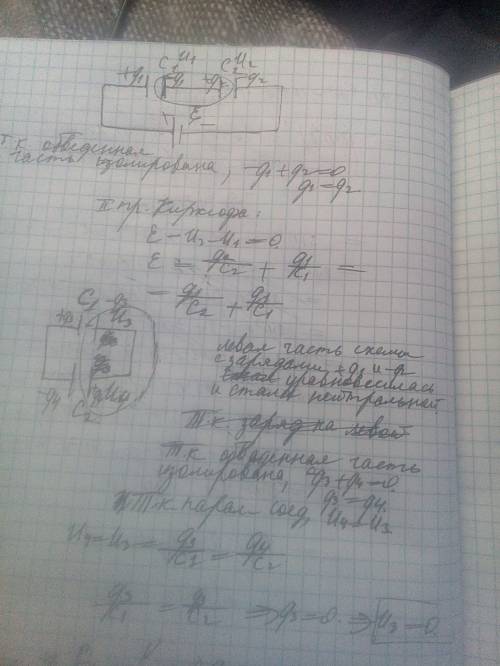 C1 U1 C2 U2
+q1 -q1 +q2 -q2
ε
Т.к обведенная
часть изолирована, -q1+q2=0
q1=q2
II пр. Кирхгофа:
ε-U2-U1=0.
ε = q2/C2 + q1/C1 =
= q1/C2 + q1/C1
C1 -q3
U3
U4
-q4
C2
левая часть схемы
с зарядами +q1 и -q2
уравновесилась
и стала нейтральной
Т.к. заряд на левой
Т.к обведенная часть
изолирована, -q3+q4=0.
q3=q4.
Т.к парал. соед, U4=U3
U4=U3=q3/C1=q4/C2
q3/C1 = q3/C2 ⇒ q3=0. ⇒ U3=0.